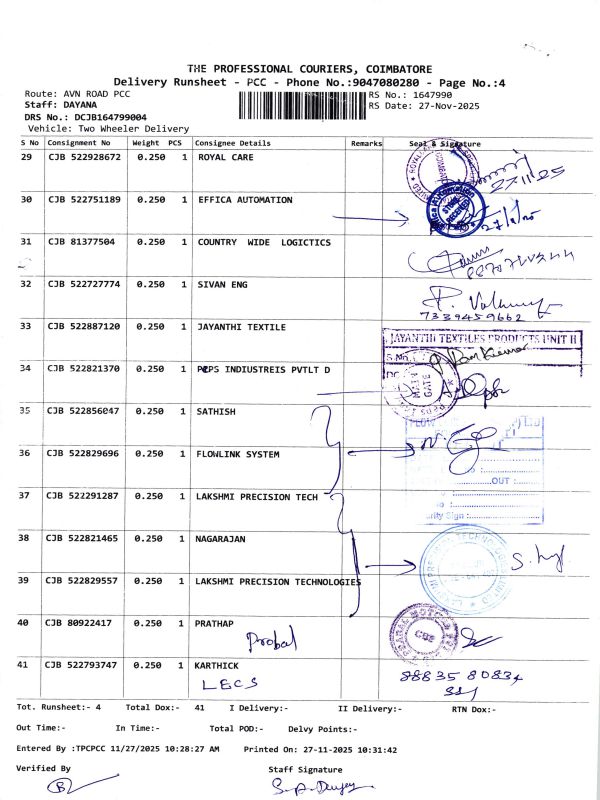 THE PROFESSIONAL COURIERS, COIMBATORE
Delivery Runsheet - PCC - Phone No.:9047080280 - Page No.:4
Route: AVN ROAD PCC RS No.: 1647990
Staff: DAYANA RS Date: 27-Nov-2025
DRS No.: DCJB164799004
Vehicle: Two Wheeler Delivery
S No Consignment No Weight PCS Consignee Details Remarks Seal & Signature
29 CJB 522928672 0.250 1 ROYAL CARE
30 CJB 522751189 0.250 1 EFFICA AUTOMATION
31 CJB 81377504 0.250 1 COUNTRY WIDE LOGICTICS
32 CJB 522727774 0.250 1 SIVAN ENG
7339459662
33 CJB 522887120 0.250 1 JAYANTHI TEXTILE
JAYANTHI TEXTILES PRODUCTS UNIT II
S.No
34 CJB 522821370 0.250 1 PCPS INDIUSTREIS PVTLT D
MAIN GATE
35 CJB 522856047 0.250 1 SATHISH
36 CJB 522829696 0.250 1 FLOWLINK SYSTEM
OUT :
37 CJB 522291287 0.250 1 LAKSHMI PRECISION TECH
38 CJB 522821465 0.250 1 NAGARAJAN
39 CJB 522829557 0.250 1 LAKSHMI PRECISION TECHNOLOGIES
40 CJB 80922417 0.250 1 PRATHAP
Probal CBE
41 CJB 522793747 0.250 1 KARTHICK
LECS
Tot. Runsheet:- 4 Total Dox:- 41 I Delivery:- II Delivery:- RTN Dox:-
Out Time:- In Time:- Total POD:- Delvy Points:-
Entered By :TPCPCC 11/27/2025 10:28:27 AM Printed On: 27-11-2025 10:31:42
Verified By Staff Signature